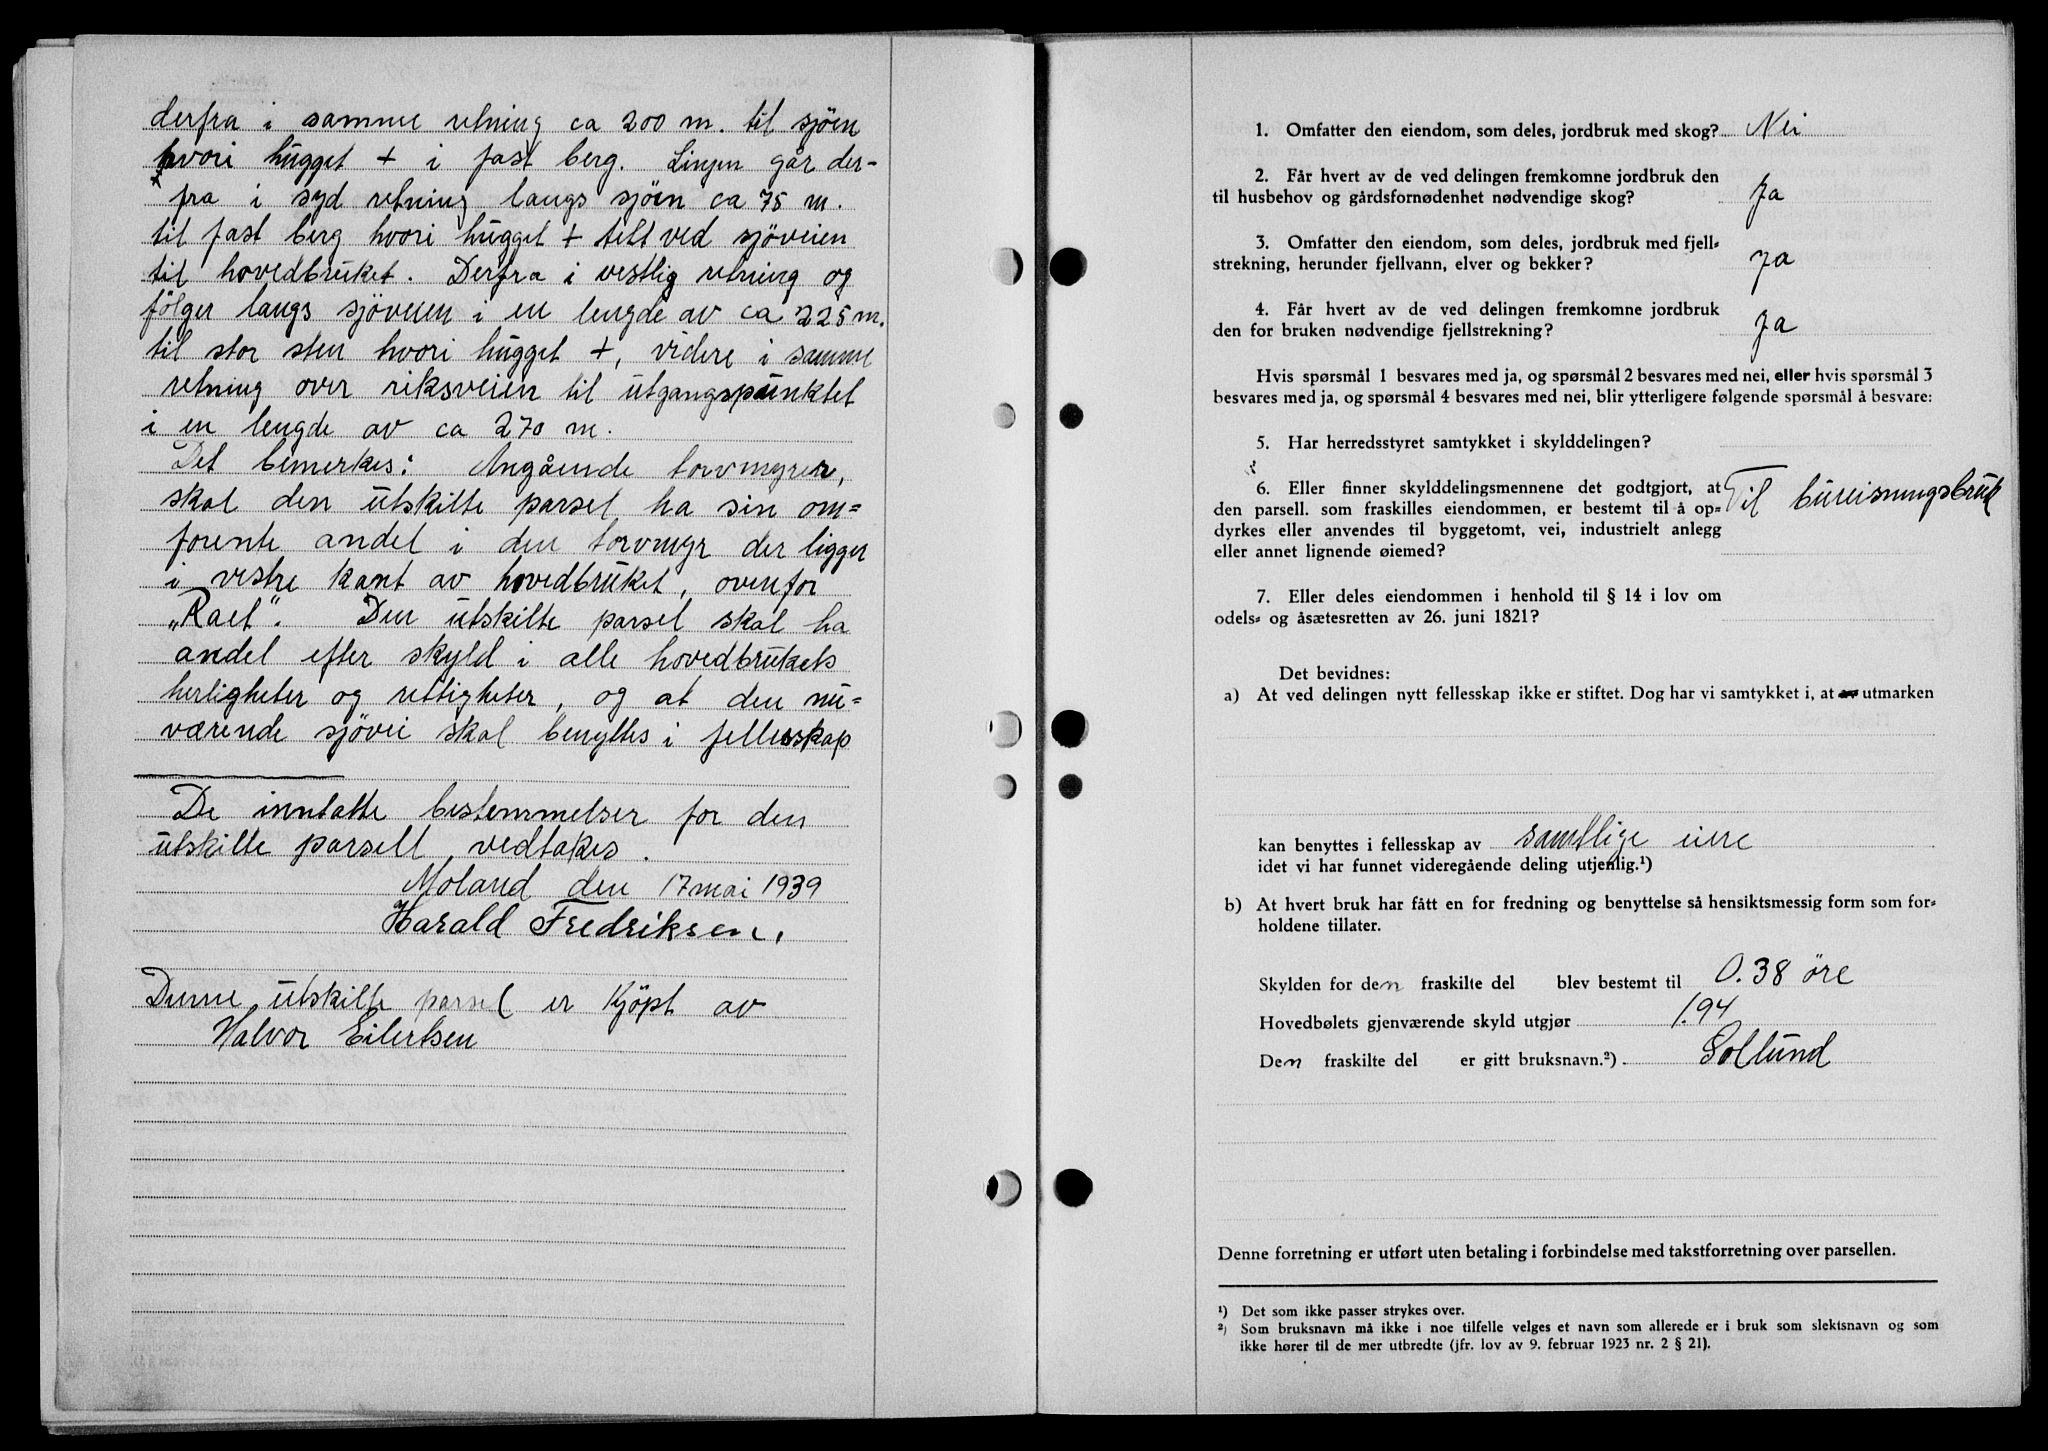 derfra i samme retning ca 200 m. til sjöen
hvori hugget + i fast berg. Linjen går der-
fra i syd retning langs sjöen ca 75 m.
til fast berg hvori hugget + tett ved sjöveien
til hovedbruket. Derfra i vestlig retning og
fölger langs sjöveien i en lengde av ca 225 m.
til stor sten hvori hugget +, videre i samme
retning over riksveien til utgangspunktet
i en lengde av ca 270 m.
Det bemerkes: Angående torvmyren,
skal den utskilte parsel ha sin om=
forente andel i den torvmyr der ligger
i vestre kant av hovedbruket, ovenfor
„Raet". Den utskilte parsel skal ha
andel efter skyld i alle hovedbrukets
herligheter og rettigheter, og at den nu=
værende sjövei skal benyttes i fellesskap
De inntatte bestemmelser for den
utskilte parsell vedtakes.
Moland den 17 mai 1939
Harald Fredriksen.
Denne utskilte parsel er kjöpt av
Halvor Eilertsen
1. Omfatter den eiendom, som deles, jordbruk med skog? Nei
2. Får hvert av de ved delingen fremkomne jordbruk den
til husbehov og gårdsfornødenhet nødvendige skog? Ja
3. Omfatter den eiendom, som deles, jordbruk med fjell=
strekning, herunder fjellvann, elver og bekker? Ja
4. Får hvert av de ved delingen fremkomne jordbruk
den for bruken nødvendige fjellstrekning? Ja
Hvis spørsmål 1 besvares med ja, og spørsmål 2 besvares med nei, eller hvis spørsmål 3
besvares med ja, og spørsmål 4 besvares med nei, blir ytterligere følgende spørsmål å besvare:
5. Har herredsstyret samtykket i skylddelingen?
6. Eller finner skylddelingsmennene det godtgjort, at
den parsell. som fraskilles eiendommen, er bestemt til å op=
dyrkes eller anvendes til byggetomt, vei, industrielt anlegg
eller annet lignende øiemed?
Til bureisningsbruk
7. Eller deles eiendommen i henhold til § 14 i lov om
odels= og åsætesretten av 26. juni 1821?
Det bevidnes:
a) At ved delingen nytt fellesskap ikke er stiftet. Dog har vi samtykket i, at av utmarken
kan benyttes i fellesskap av samtlige eiere
idet vi har funnet videregående deling utjenlig.¹)
b) At hvert bruk har fått en for fredning og benyttelse så hensiktsmessig form som for=
holdene tillater.
Skylden for den fraskilte del blev bestemt til 0.38 öre
Hovedbølets gjenværende skyld utgjør 1.94
Den fraskilte del er gitt bruksnavn.²) Sollund
Denne forretning er utført uten betaling i forbindelse med takstforretning over parsellen.
¹) Det som ikke passer strykes over.
²) Som bruksnavn må ikke i noe tilfelle velges et navn som allerede er i bruk som slektsnavn og som
ikke hører til de mer utbredte (jfr. lov av 9. februar 1923 nr. 2 § 21).